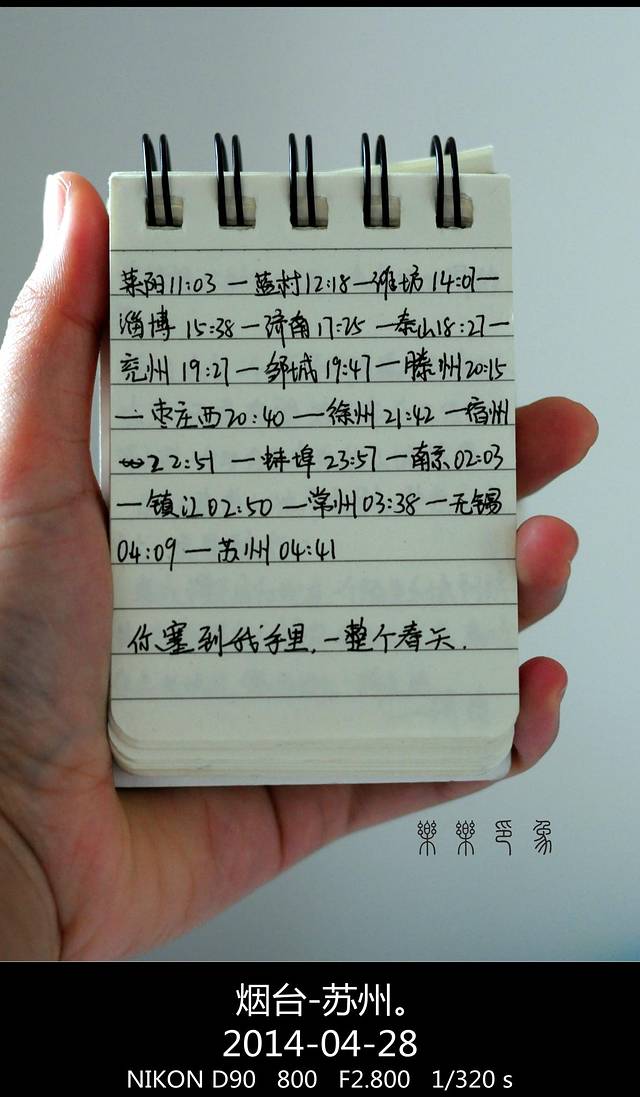 莱阳11:03 — 蓝村12:18—潍坊 14:07—
淄博 15:38 — 济南17:25 —泰山18:27—
兖州 19:27 — 邹城 19:47 — 滕州20:15
— 枣庄西20:40 — 徐州 21:42 — 宿州
22:51 — 蚌埠 23:57 — 南京02:03
— 镇江02:50 — 常州03:38 — 无锡
04:09 — 苏州 04:41
你塞到我手里,一整个春天.
樂樂印象
烟台-苏州。
2014-04-28
NIKON D90 800 F2.800 1/320 s